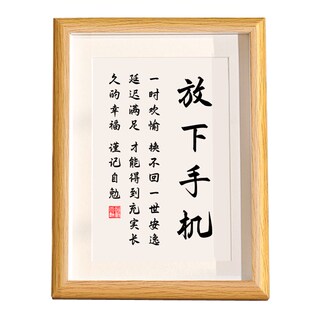 放下手机
一时欢愉 换不回一世安逸
延迟满足 才能得到充实长
久的幸福 谨记自勉